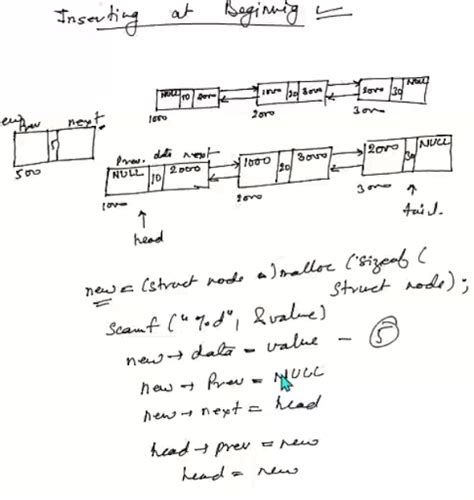 Inserting at Beginning
NULL 10 2000 1000 20 3000 2000 30 NULL
1000 2000 3000
new
Prev next
5
500
Prev. data next
NULL 10 2000 1000 20 3000 2000 30 NULL
1000 2000 3000
head tail.
new = (struct node *)malloc (sizeof (
struct node);
scanf ("%d", &value)
new → data = value - 5
new → Prev = NULL
new → next = head
head → prev = new
head = new